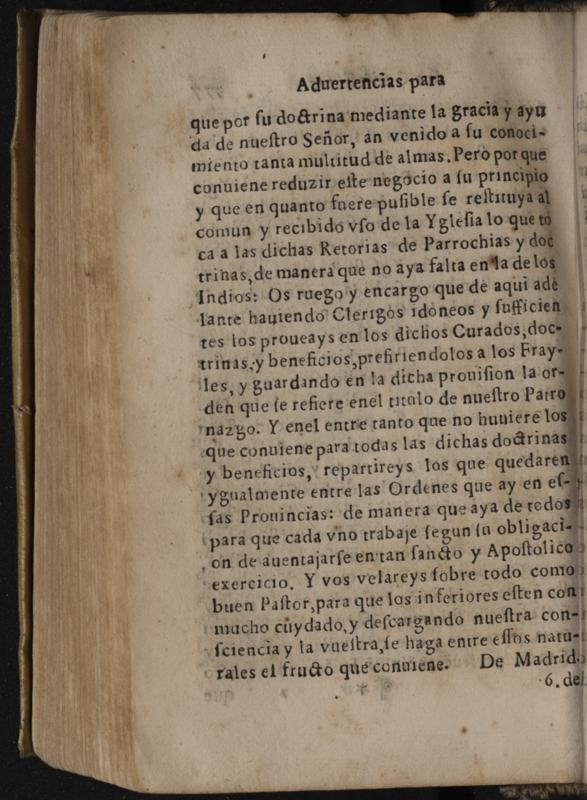 Aduertencias para
que por ſu doctrina mediante la gracia y ayu
da de nueſtro Señor, an venido a ſu conoci-
miento tanta multitud de almas. Pero por que
conuiene reduzir eſte negocio a ſu principio
y que en quanto fuere puſible ſe reſtituya al
comun y recibido vſo de la Ygleſia lo que to
ca a las dichas Retorias de Parrochias y doc
trinas, de manera que no aya falta en la de los
Indios: Os ruego y encargo que de aqui ade
lante hauiendo Clerigos idoneos y ſufficien
tes los proueays en los dichos Curados, doc-
trinas, y beneficios, prefiriendolos a los Fray-
les, y guardando en la dicha prouiſion la or-
den que ſe refiere enel titulo de nueſtro Patro
nazgo. Y enel entre tanto que no huuiere los
que conuiene para todas las dichas doctrinas
y beneficios, repartireys los que quedaren
ygualmente entre las Ordenes que ay en eſ-
ſas Prouincias: de manera que aya de todos
para que cada vno trabaje ſegun ſu obligaci-
on de auentajarſe en tan ſancto y Apoſtolico
exercicio. Y vos velareys ſobre todo como
buen Paſtor, para que los inferiores eſten con
mucho cuydado, y deſcargando nueſtra con-
ſciencia y la vueſtra, ſe haga entre eſſos natu-
rales el fructo que conuiene. De Madrid.
6. de